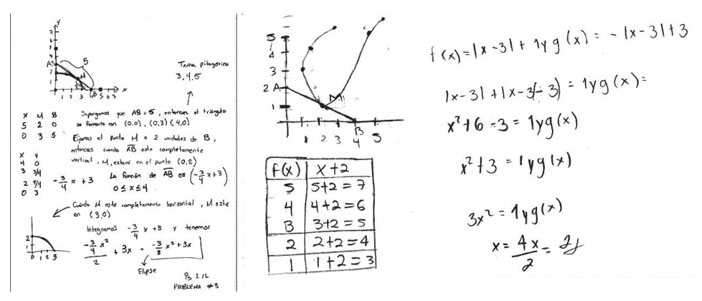 5
Terna pitagórica
3, 4, 5
x M B
5 2 0
0 3 5
Supongamos que AB = 5, entonces el triángulo
se formaría con (0,0), (0,3) (4,0)
Fijamos el punto M a 2 unidades de B,
entonces cuando AB este completamente
vertical, M, estará en el punto (0,2)
x y
4 0
3 3/4
2
0 3
-3/4 x + 3
La función de AB es (-3/4 x + 3)
0 ≤ x ≤ 4
Cuando M este completamente horizontal, M este
en (3,0)
Integramos -3/4 x + 3 y tenemos
-3/4 x²/2 + 3x = -3/8 x² + 3x
Elipse
PROBLEMA #3
5
4
3
2 A
1
M
B
1 2 3 4 5
f(x) x+2
5 5+2=7
4 4+2=6
3 3+2=5
2 2+2=4
1 1+2=3
f(x)=|x-3|+1 y g(x)=-|x-3|+3
|x-3|+|x-3|-3|=1yg(x)=
x²+6-3=1yg(x)
x²+3=1yg(x)
3x²=1yg(x)
x=4x/2=2